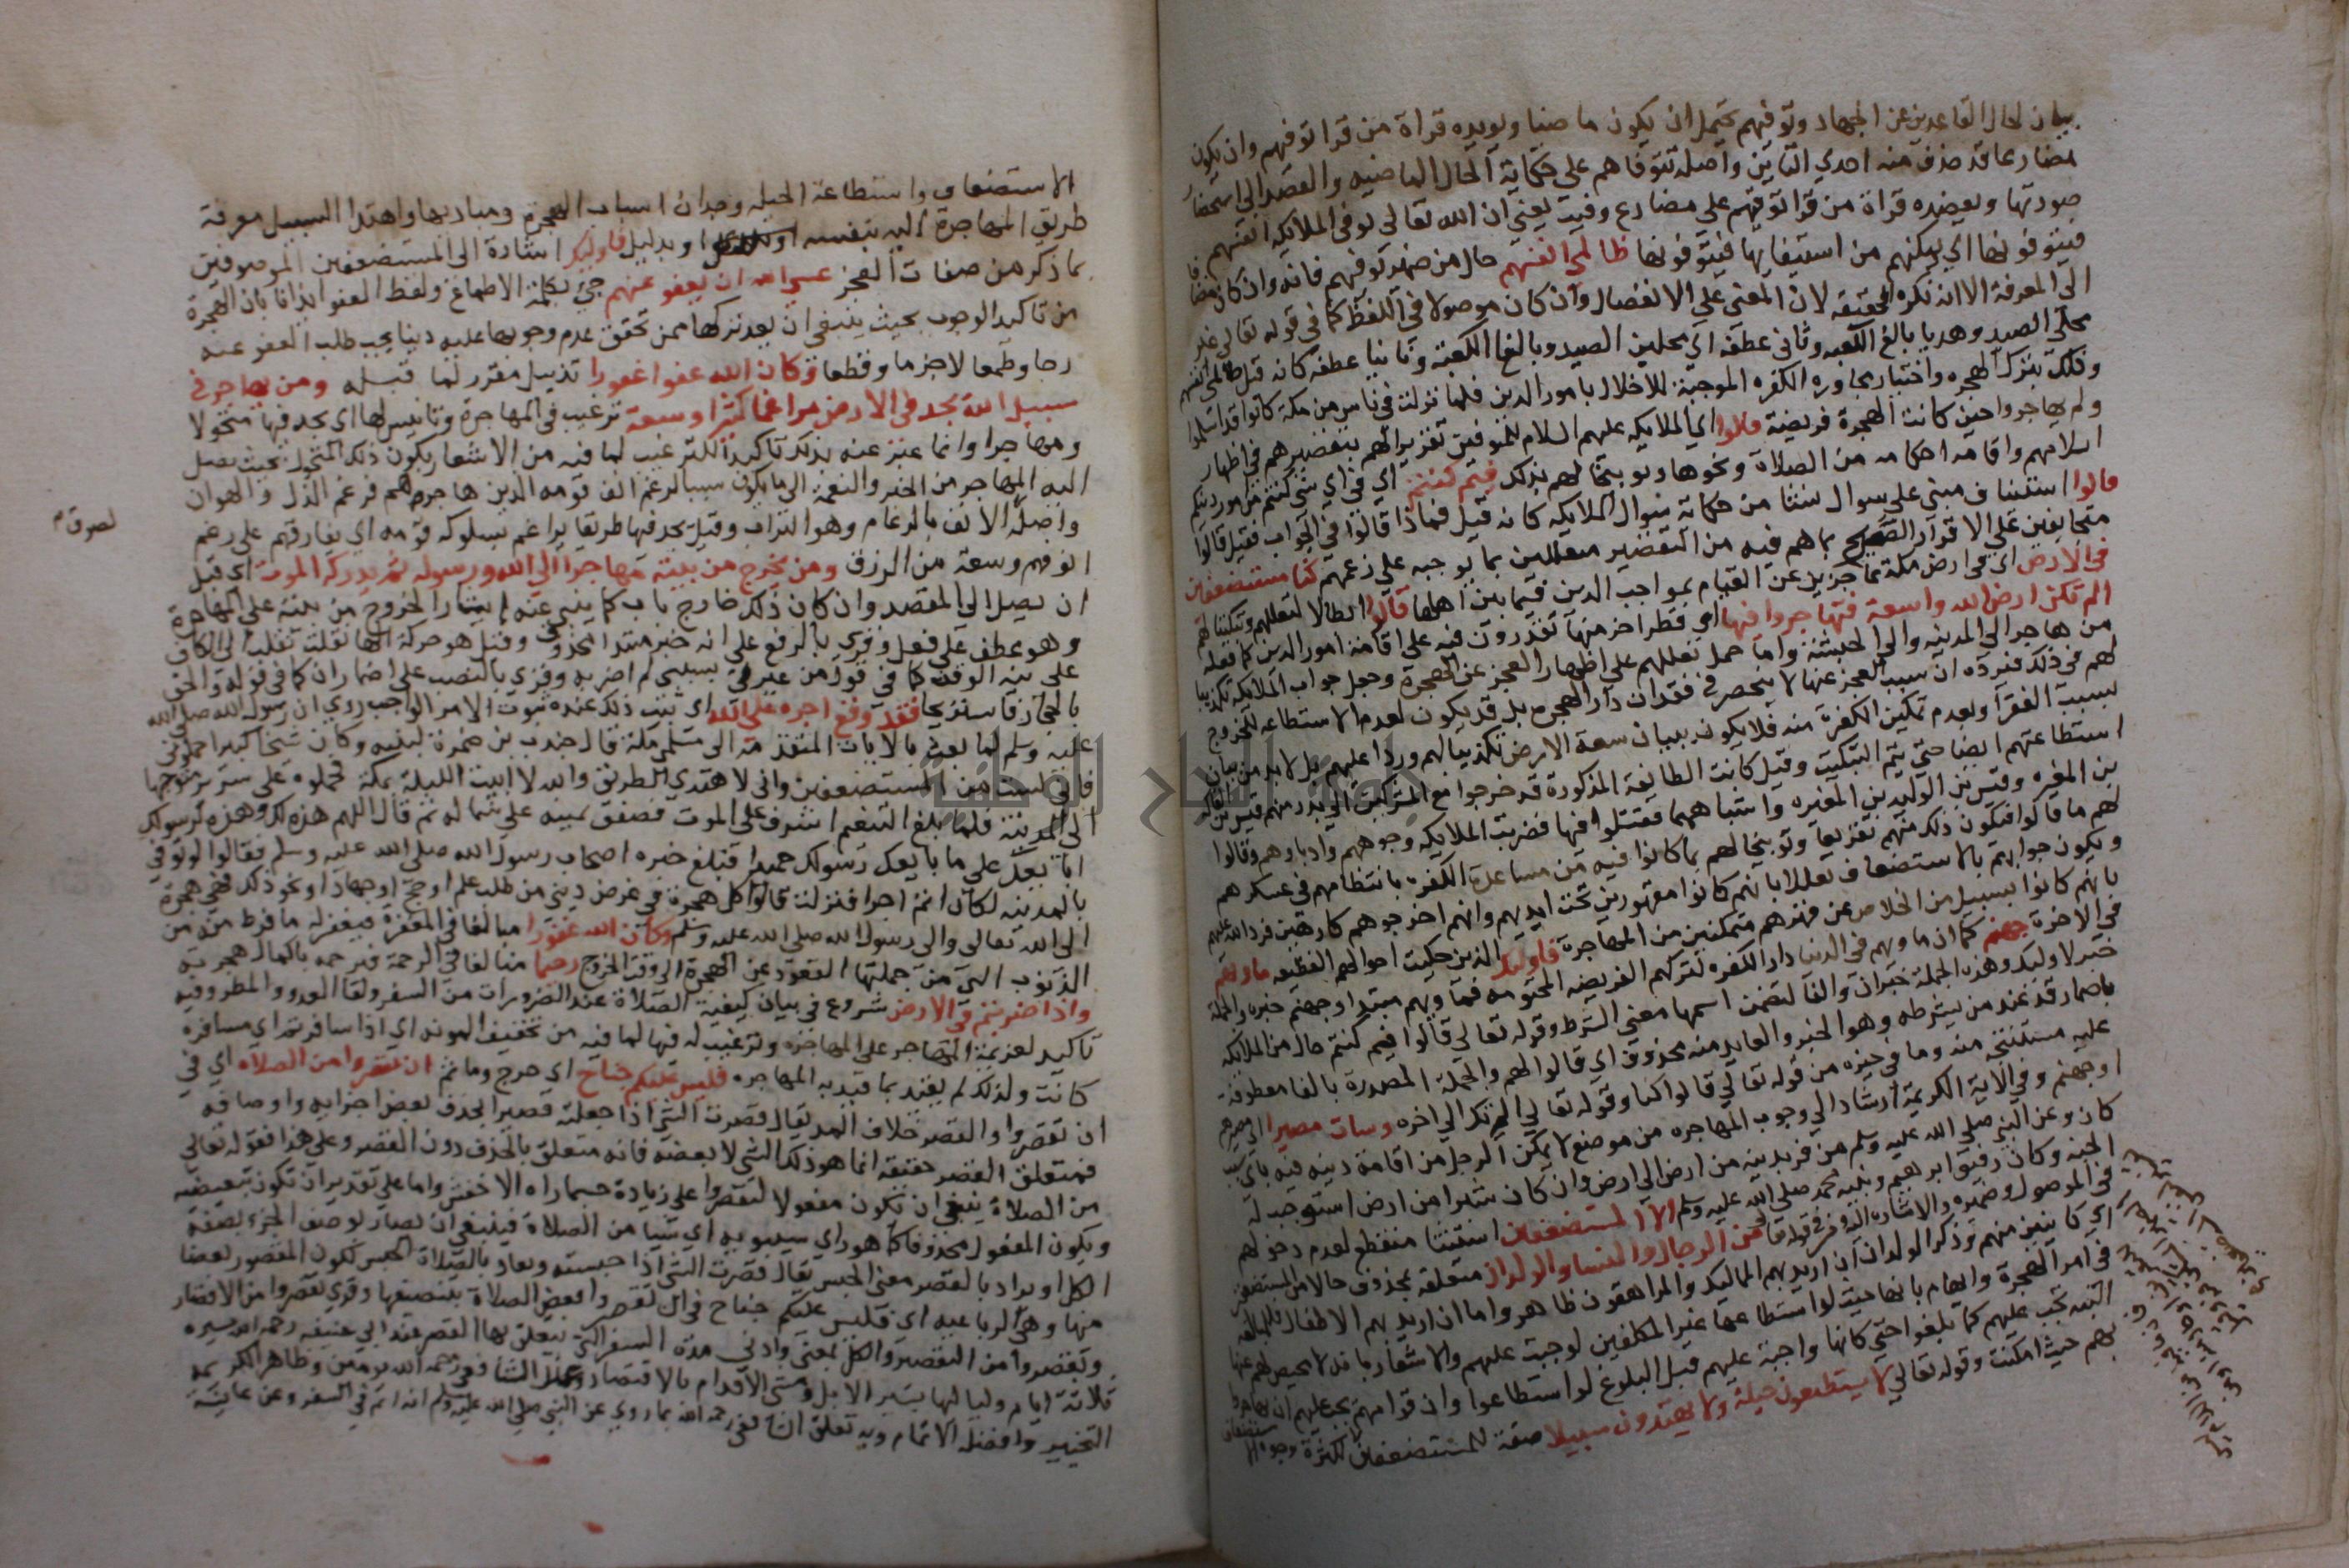 بيان لحال القاعدين عن الجهاد وتوفيهم يحتمل ان يكون ماضيا ويويده قراة من قرا توفتهم وان يكون
مضارعا قد حذف منه احدي التاين واصله تتوفاهم علي حكاية الحال الماضيه والقصد الي استحضار
صورتها ويعضده قراة من قرا توفيهم علي مضارع وفيت يعني ان الله تعالي يوفي الملايكه انفسهم
فيتوفونها اي يمكنهم من استيفايها فيتوفونها ظالمي انفسهم حال من ضمير توفيهم فانه وان كان مضافا
الي المعرفة الا انه نكره في الحقيقه لان المعني علي الانفصال وان كان موصولا في اللفظ كما في قوله تعالي غير
محلي الصيد وهديا بالغ الكعبه وثاني عطفه اي محلين الصيد وبالغا الكعبة وثانيا عطفه كانه قيل ظالمين انفسهم
وذلك بترك الهجره واختيار مجاورة الكفره الموجبة للاخلال بامور الدين فلما نزلت في ناس من مكة كانوا قد اسلموا
ولم يهاجروا حين كانت الهجرة فريضة قالوا اي الملايكه عليهم السلام للمتوفين تقريرا لهم بتقصيرهم في اظهار
اسلامهم واقامة احكامه من الصلاة ونحوها وتوبيخا لهم بذلك فيم كنتم اي في اي شي كنتم من امور دينكم
قالوا استيناف مبني علي سوال نشا من حكاية سوال الملايكه كانه قيل فماذا قالوا في الجواب فقيل قالوا
متجانفين علي الاقرار الصريح بما هم فيه من التقصير متعللين بما يوجبه علي زعمهم كنا مستضعفين
في الارض اي في ارض مكة عاجزين عن القيام بمواجب الدين فيما بين اهلها قالوا ابطالا لتعللهم وتبكيتا لهم
الم تكن ارض الله واسعة فتهاجروا فيها اي قطر اخر منها تقدرون فيه علي اقامة امور الدين كما فعله
من هاجر الي المدينه والي الحبشة واما حمل تعللهم علي اظهار العجز عن الهجرة وجعل جواب الملايكه تكذيبا
لهم في ذلك فيرده ان سبب العجز عنها لا ينحصر في فقدان دار الهجره بل قد يكون لعدم الاستطاعه للخروج
بسبب الفقر او لعدم تمكين الكفرة منه فلا يكون بيان سعة الارض تكذيبا لهم وردا عليهم بل لا بد من بيان
استطاعتهم ايضا حتي يتم التبكيت وقيل كانت الطايفة المذكورة قد خرجوا مع المشركين الي بدر منهم قيس بن الفاكه
بن المغيره وقيس بن الوليد بن المغيره واشباههما فقتلوا فيها فضربت الملايكه وجوههم وادبارهم وقالوا
لهم ما قالوا فيكون ذلك منهم تقريعا وتوبيخا لهم بما كانوا فيه من مساعدة الكفره بانتظامهم في عسكرهم
ويكون جوابهم بالاستضعاف تعللا بانهم كانوا مقهورين تحت ايديهم وانهم اخرجوهم كارهين فرد الله عليهم
بانهم كانوا بسبيل من الخلاص عن قهرهم متمكنين من المهاجرة فاوليك الذين حكيت احوالهم الفظيعه ماويهم
في الاخرة جهنم كما ان ماويهم في الدنيا دار الكفره لتركهم الفريضه المحتومه فماويهم مبتدا وجهنم خبره والجملة
خبر لاوليك وهذه الجملة خبر ان والفا لتضمن اسمها معني الشرط وقوله تعالي قالوا فيم كنتم حال من الملايكه
باضمار قد عند من يشرطه وهو الخبر والعايد منه محذوف اي قالوا لهم والجملة المصدرة بالفا معطوفة
عليه مستنتجه منه وما في حيزه من قوله تعالي قالوا كنا وقوله تعالي الم تكن الي اخره وسات مصيرا اي مصيرهم
او جهنم وفي الاية الكريمة ارشاد الي وجوب المهاجره من موضع لا يتمكن الرجل من اقامة دينه فيه باي سبب
كان وعن النبي صلي الله عليه وسلم من فر بدينه من ارض الي ارض وان كان شبرا من ارض استوجبت له
الجنه وكان رفيق ابرهيم ونبيه محمد صلي الله عليه وسلم الا المستضعفين استثنا منقطع لعدم دخولهم
في الموصول وضميره والاشاره اليه وفي قوله تعالي من الرجال والنسا والولدان متعلقة بمحذوف حالا من المستضعفين
اي كاينين منهم وذكر الولدان ان اريد بهم المماليك والمراهقون ظاهر واما ان اريد بهم الاطفال فللمبالغه
في امر الهجرة وايهام بانها بحيث لو استطاعها غير المكلفين لوجبت عليهم والاشعار بانه لا محيص لهم عنها
البته تجب عليهم كما بلغوا حتي كانها واجبة عليهم قبل البلوغ لو استطاعوا وان قوامهم يجب عليهم ان يهاجروا
بهم حيث امكنت وقوله تعالي لا يستطيعون حيلة ولا يهتدون سبيلا صفة للمستضعفين لكثرة وجوه
الاستضعاف واستطاعة الحيله وجدان اسباب الهجره ومباديها واهتدا السبيل معرفة
طريق المهاجرة اليه بنفسه او بدليل فاوليك اشارة الي المستضعفين الموصوفين
بما ذكر من صفات العجز عسي الله ان يعفو عنهم جي بكلمة الاطماع ولفظ العفو ايذانا بان الهجرة
من تاكيد الوجوب بحيث ينبغي ان يعد تركها ممن تحقق عدم وجوبها عليه دينا يجب طلب العفو عنه
رجا وطمعا لا جزما وقطعا وكان الله عفوا غفورا تذييل مقرر لما قبله ومن يهاجر في
سبيل الله يجد في الارض مراغما كثيرا وسعة ترغيب في المهاجرة وتانيس لها اي يجد فيها متحولا
ومهاجرا وانما عبر عنه بذلك تاكيدا للترغيب لما فيه من الاشعار بكون ذلك المتحول بحيث يصل
اليه المهاجر من الخير والنعمة الي ما يكون سببا لرغم انف قومه الذين هاجرهم فرغم الذل والهوان
لصوق م
واصله الانف بالرغام وهو التراب وقيل يجد فيها طريقا يراغم بسلوكه قومه اي يفارقهم علي رغم
انوفهم وسعة من الرزق ومن يخرج من بيته مهاجرا الي الله ورسوله ثم يدركه الموت اي قبل
ان يصل الي المقصد وان كان ذلك خارج بابه كما ينبي عنه ايثار الخروج من بيته علي المهاجرة
وهو عطف علي فعل وقري بالرفع علي انه خبر مبتدا محذوف وقيل هو حركة الها نقلت الي الكاف
علي نية الوقف كما في قوله من عنزي سبني لم اضربه وقري بالنصب علي اضمار ان كما في قوله والحق
بالحجاز فاستريحا فقد وقع اجره علي الله اي ثبت ذلك عنده ثبوت الامر الواجب روي ان رسول الله صلي الله
عليه وسلم لما بعث بالايات المتقدمة الي مسلمي مكة قال جندب بن ضمرة لبنيه وكان شيخا كبيرا احملوني
فاني لست من المستضعفين واني لاهتدي الطريق والله لا ابيت الليلة بمكة فحملوه علي سرير متوجها
الي المدينة فلما بلغ التنعيم اشرف علي الموت فصفق بيمينه علي شماله ثم قال اللهم هذه لك وهذه لرسولك
ابايعك علي ما بايعك رسولك فمات حميدا فبلغ خبره اصحاب رسول الله صلي الله عليه وسلم فقالوا لو توفي
بالمدينه لكان اتم اجرا فنزلت قالوا كل هجرة في غرض ديني من طلب علم او حج او جهاد او نحو ذلك فهي هجرة
الي الله تعالي والي رسول الله صلي الله عليه وسلم وكان الله غفورا مبالغا في المغفرة فيغفر له ما فرط منه من
الذنوب التي من جملتها القعود عن الهجرة الي وقت الخروج رحيما مبالغا في الرحمة فيرحمه باكمال هجرته
واذا ضربتم في الارض شروع في بيان كيفية الصلاة عند الضرورات من السفر ولقا العدو والمطر وفيه
تاكيد لعزيمة المهاجر علي المهاجرة وترغيب له فيها لما فيه من تخفيف المونه اي اذا سافرتم اي مسافرة
كانت ولذلك لم يقيد بما قيد به المهاجره فليس عليكم جناح اي حرج وماثم ان تقصروا من الصلاة اي في
ان تقصروا والقصر خلاف المد يقال قصرت الشي اذا جعلته قصيرا بحذف بعض اجزايه واوصافه
فمتعلق القصر حقيقة انما هو ذلك الشي لا بعضه فانه متعلق بالحذف دون القصر وعلي هذا فقوله تعالي
من الصلاة ينبغي ان يكون مفعولا لتقصروا علي زيادة من حسبما راه الاخفش واما علي تقدير ان تكون تبعيضيه
ويكون المفعول محذوفا كما هو راي سيبويه اي شيا من الصلاة فينبغي ان يصار لوصف الجزء بصفة
الكل او يراد بالقصر معني الحبس يقال قصرت الشي اذا حبسته ويعاد بالصلاة الجنس لكون المقصور بعضا
منها وهي الرباعيه اي فليس عليكم جناح في ان تقصروا بعض الصلاة بتنصيفها وقري تقصروا من الاقصار
وتقصروا من التقصير والكل بمعني وادني مدة السفر الذي يتعلق بها القصر عند ابي حنيفه رحمه الله مسيرة
ثلاثة ايام ولياليها بسير الابل ومشي الاقدام بالاقتصاد وعند الشافعي رحمه الله يومين وظاهر الكريمه
التخيير وافضلية الاتمام وبه تعلق الشافعي رحمه الله بما روي عن النبي صلي الله عليه وسلم انه اتم في السفر وعن عايشة